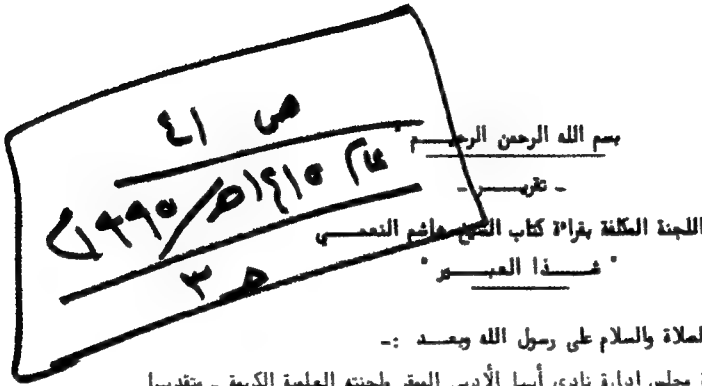 ص ٤١
عام ١٤١٥هـ/١٩٩٥م
هـ ٣
بسم الله الرحمن الرحيــم
ـ تقريــر ـ
اللجنة المكلفة بقراءة كتاب الشيخ هاشم النعمــي
" شــذا العبــير "
الصلاة والسلام على رسول الله وبعــد :ـ
مجلس إدارة نادي أبها الأدبي الموقر ولجنته العلمية الكريمة ـ وتقديرا